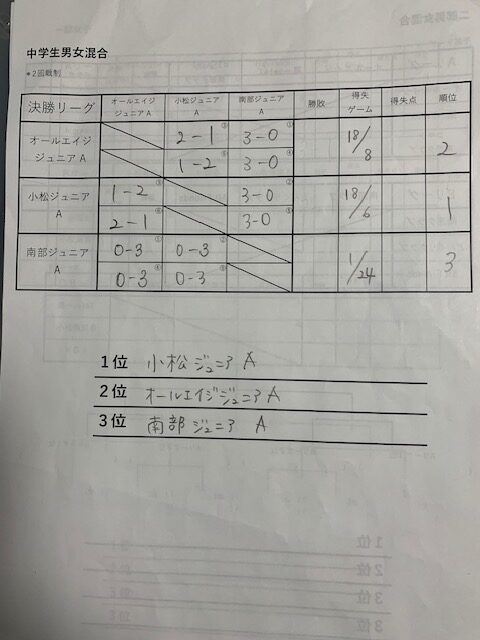 中学生男女混合
*2回戦制
決勝リーグ オールエイジジュニアA 小松ジュニアA 南部ジュニアA 勝敗 得失ゲーム 得失点 順位
オールエイジジュニアA 2-1 ③ 3-0 ① 18/8 2
1-2 ⑥ 3-0 ④
小松ジュニアA 1-2 ③ 3-0 ② 18/6 1
2-1 ⑥ 3-0 ⑤
南部ジュニアA 0-3 ① 0-3 ② 1/24 3
0-3 ④ 0-3 ⑤
1位 小松ジュニアA
2位 オールエイジジュニアA
3位 南部ジュニアA